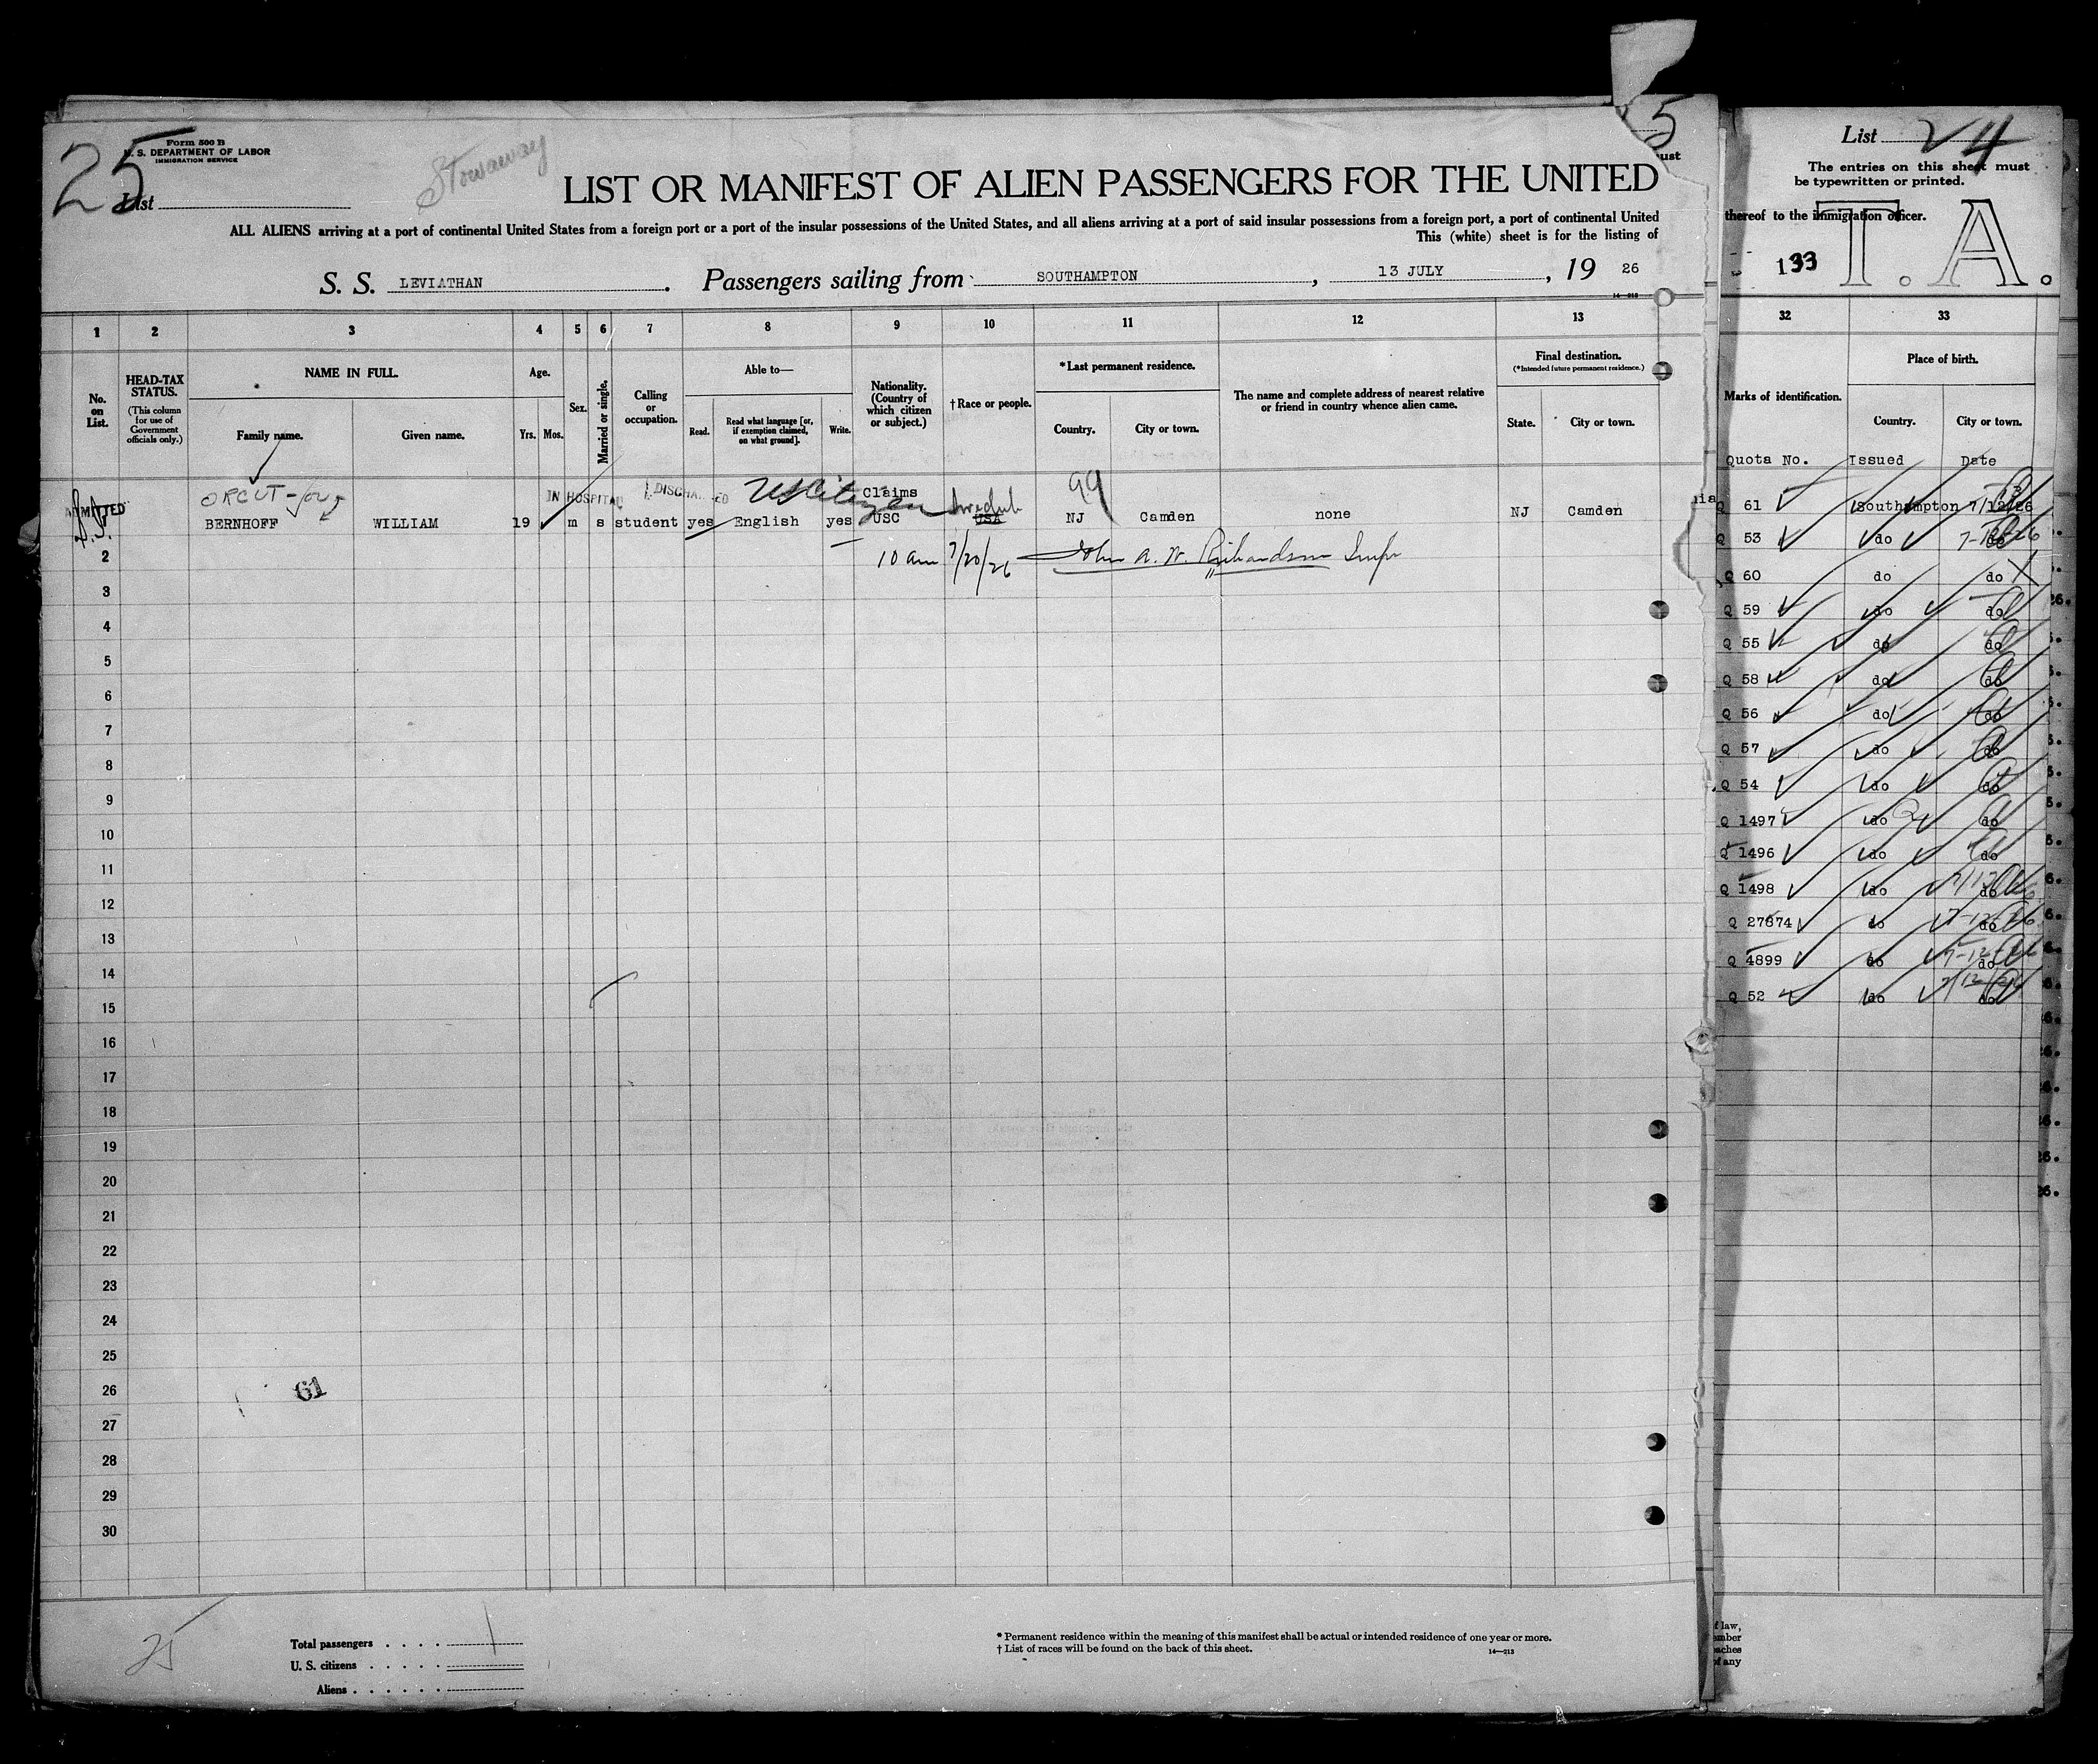 25
Form 500 B
U. S. DEPARTMENT OF LABOR
IMMIGRATION SERVICE
List
Stowaway
5
ust
LIST OR MANIFEST OF ALIEN PASSENGERS FOR THE UNITED
ALL ALIENS arriving at a port of continental United States from a foreign port or a port of the insular possessions of the United States, and all aliens arriving at a port of said insular possessions from a foreign port, a port of continental United
This (white) sheet is for the listing of
S. S. LEVIATHAN. Passengers sailing from SOUTHAMPTON, 13 JULY, 19 26
14—213
1 2 3 4 5 6 7 8 9 10 11 12 13
No. on List.
HEAD-TAX STATUS.
(This column for use of Government officials only.)
NAME IN FULL.
Family name. Given name.
Age.
Yrs. Mos.
Sex.
Married or single.
Calling or occupation.
Able to—
Read. Read what language [or, if exemption claimed, on what ground]. Write.
Nationality. (Country of which citizen or subject.)
†Race or people.
*Last permanent residence.
Country. City or town.
The name and complete address of nearest relative or friend in country whence alien came.
Final destination.
(*Intended future permanent residence.)
State. City or town.
ADMITTED
ORCUT
IN HOSPITAL DISCHARGED US Citizen Claims Swedish 99
1 BERNHOFF WILLIAM 19 m s student yes English yes USC USA NJ Camden none NJ Camden
2 10 am 7/20/26 John A. W. Richardson Inspr
3
4
5
6
7
8
9
10
11
12
13
14
15
16
17
18
19
20
21
22
23
24
25
26
61
27
28
29
30
25
Total passengers . . . . 1
U. S. citizens . . . . .
Aliens . . . . . .
* Permanent residence within the meaning of this manifest shall be actual or intended residence of one year or more.
† List of races will be found on the back of this sheet.
14—213
List 24
The entries on this sheet must
be typewritten or printed.
thereof to the immigration officer.
133 T. A.
32 33
Marks of identification.
Place of birth.
Country. City or town.
Quota No. Issued Date
Q 61 Southampton 7/12/26
Q 53 do do
Q 60 do do
Q 59 do do
Q 55 do do
Q 58 do do
Q 56 do do
Q 57 do do
Q 54 do do
Q 1497 do do
Q 1496 do do
Q 1498 do do
Q 27874 do do
Q 4899 do do
Q 52 do do
f law,
ember
eaches
of any